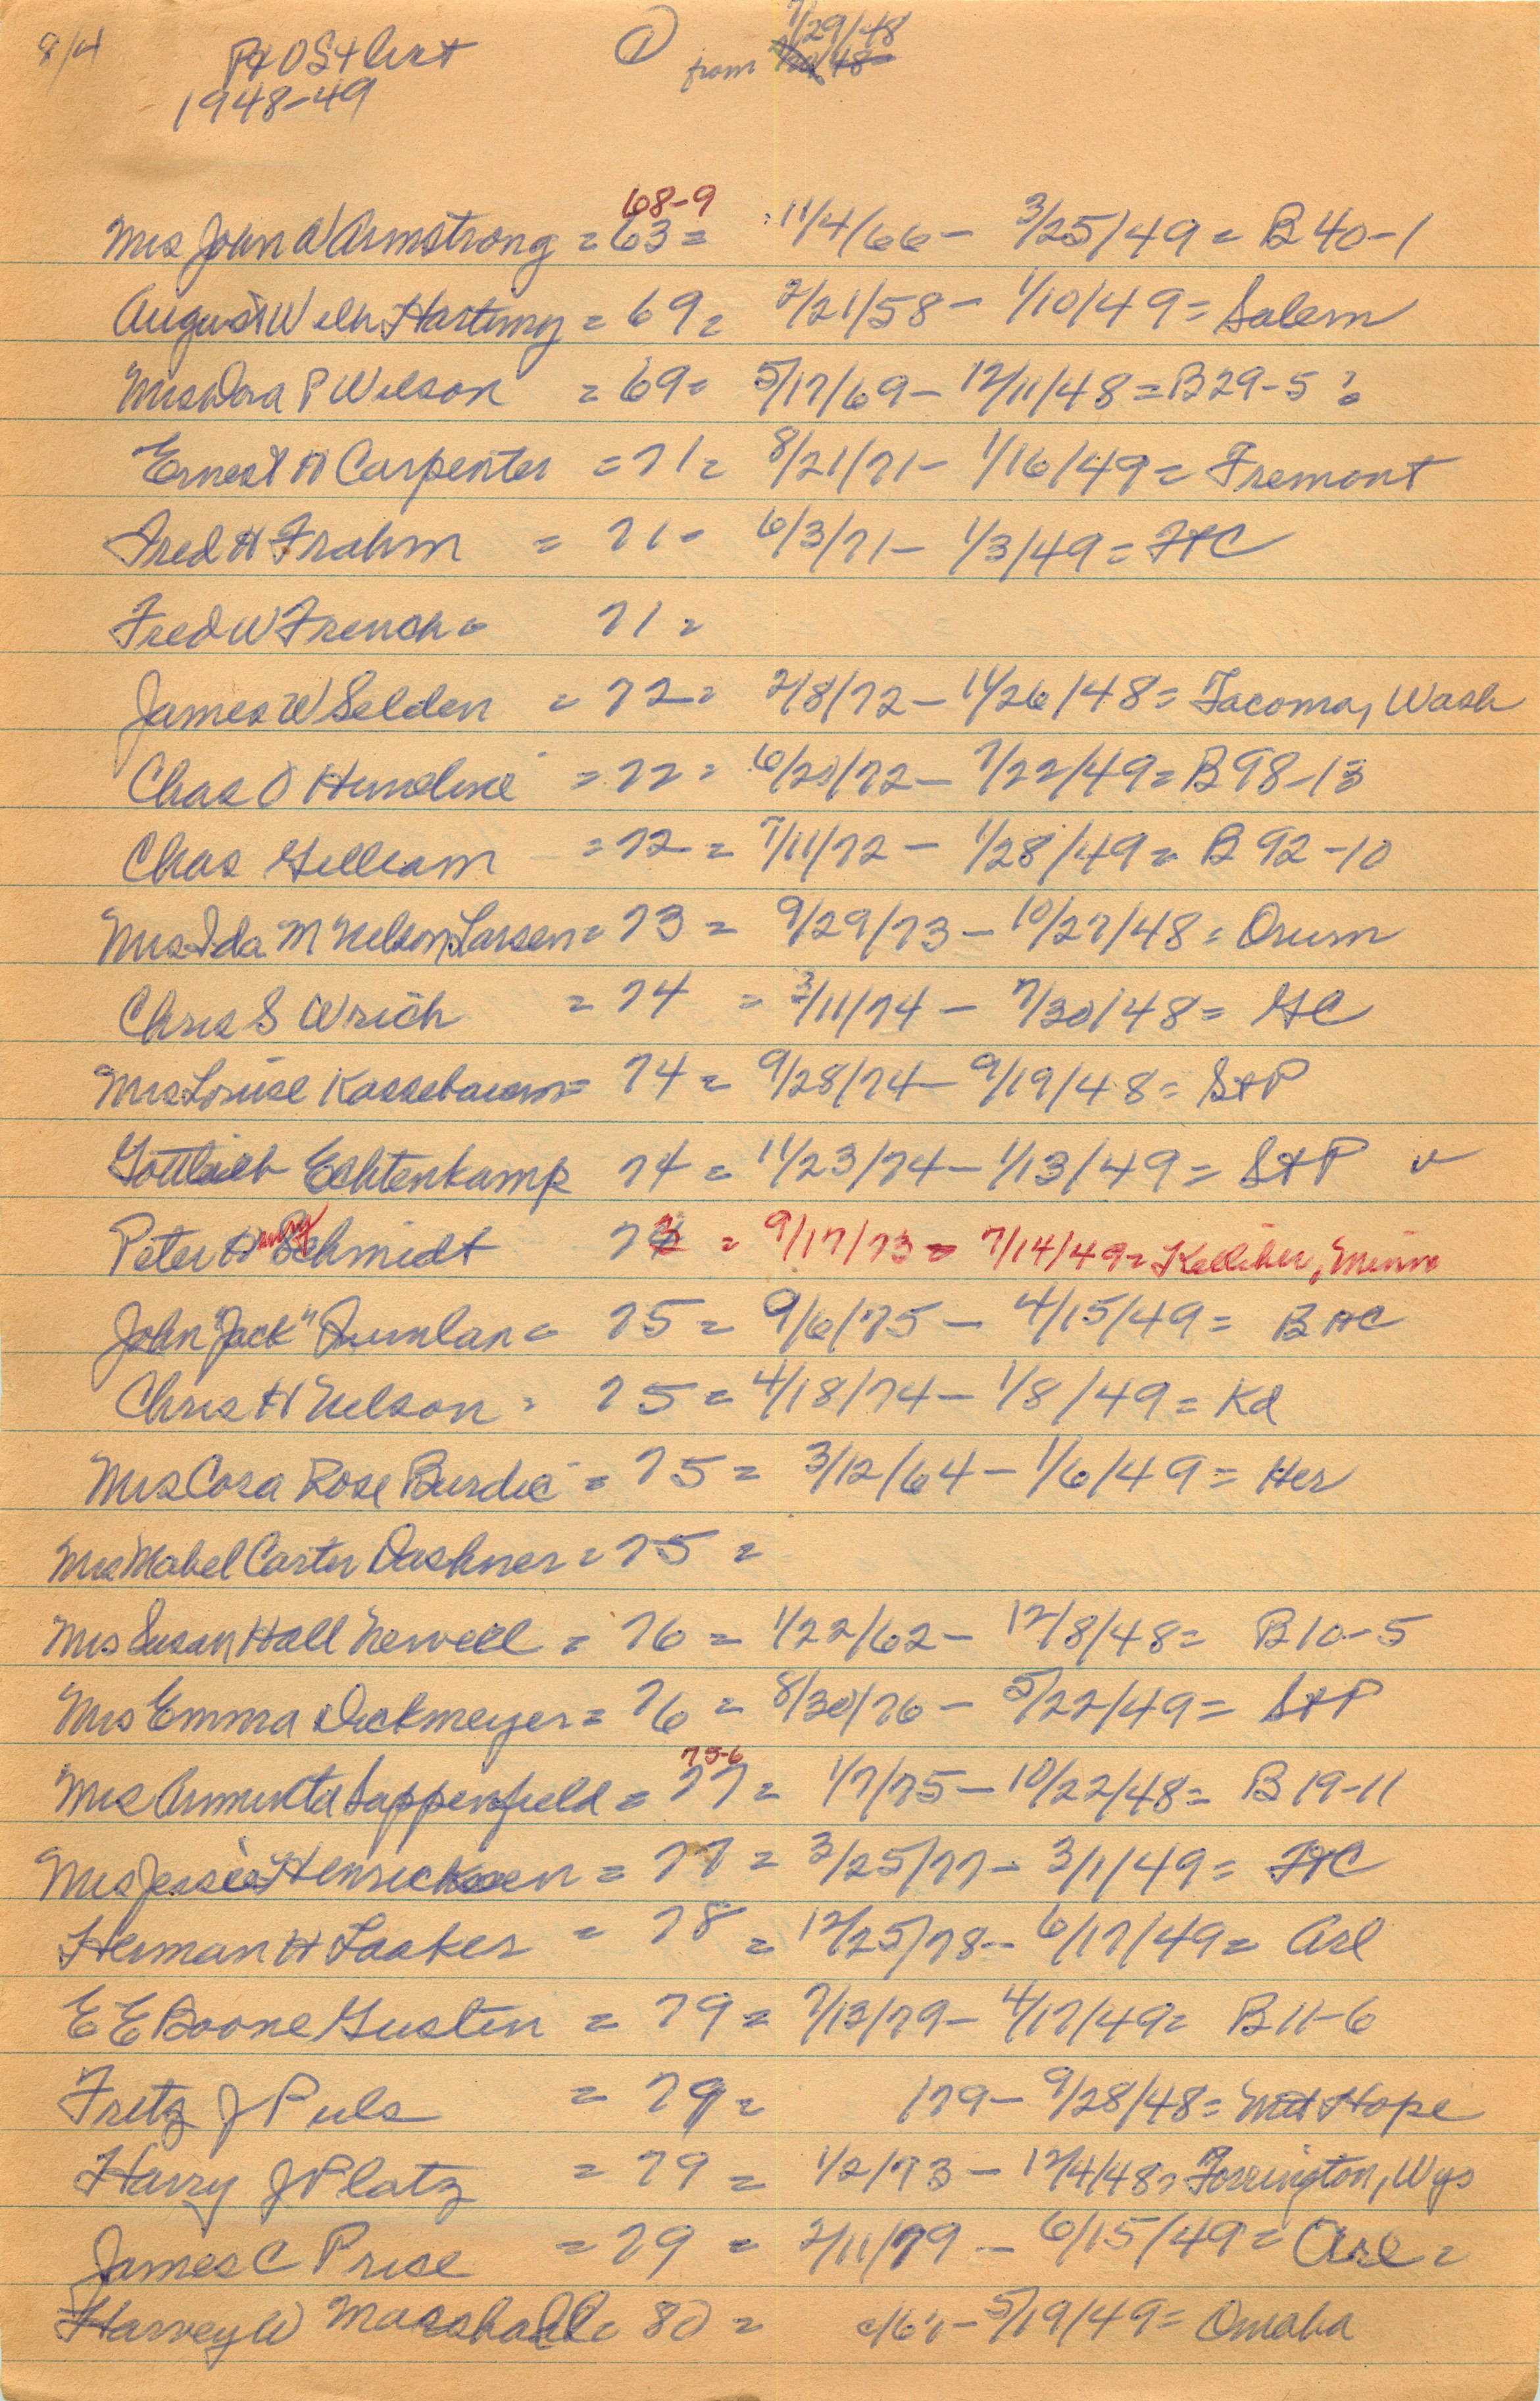 8/4 P&OSt List ① from 7/29/48
1948-49
68-9
Mrs John A Armstrong = 63 = 11/4/66 - 3/25/49 = B 40-1
August Wilh Hartung = 69 = 2/21/58 - 1/10/49 = Salem
Mrs Dora P Wilson = 69 = 5/17/69 - 12/11/48 = B 29-5 ?
Ernest H Carpenter = 71 = 8/21/71 - 1/16/49 = Fremont
Fred H Frahm = 71 = 6/3/71 - 1/3/49 = FtC
Fred W French = 71 =
James W Selden = 72 = 2/8/72 - 11/26/48 = Tacoma, Wash
Chas O = 72 = 6/20/72 - 7/22/49 = B 98-13
Chas Gilliam = 72 = 7/11/72 - 1/28/49 = B 92-10
Mrs Ida M Nelson Larsen = 73 = 9/29/73 - 10/27/48 = Orum
Chris S Wrich = 74 = 3/11/74 - 7/30/48 = GC
Mrs Louise Kassebaum = 74 = 9/28/74 - 9/19/48 = StP
Gottlieb Echtenkamp 74 = 11/23/74 - 1/13/49 = StP ✓
Peter Henry Schmidt 73 = 9/17/73 = 7/14/49 = Kelliher, Minn
John "Jack" Quinlan = 75 = 9/6/75 - 4/15/49 = B HC
Chris H Nelson = 75 = 4/18/74 - 1/8/49 = Kd
Mrs Cora Rose Burdic = 75 = 3/12/64 - 1/6/49 = Her
Mrs Mabel Carter Dashner = 75 =
Mrs Susan Hall Newell = 76 = 1/22/62 - 12/8/48 = B 10-5
Mrs Emma Dickmeyer = 76 = 8/30/76 - 5/22/49 = StP
75-6
Mrs Arminta Sappenfield = 77 = 1/7/75 - 10/22/48 = B 19-11
Mrs Jessie Henricksen = 77 = 3/25/77 - 3/1/49 = FtC
Herman H Laaker = 78 = 12/25/78 - 6/17/49 = Arl
E E Boone Gustin = 79 = 7/13/79 - 4/17/49 = B 11-6
Fritz J Puls = 79 = /79 - 9/28/48 = Mt Hope
Harry J Platz = 79 = 1/2/73 - 12/4/48 = Torrington, Wyo
James C Price = 79 = 2/11/79 - 6/15/49 = Arl =
Harvey W Marshall = 80 = - 5/19/49 = Omaha